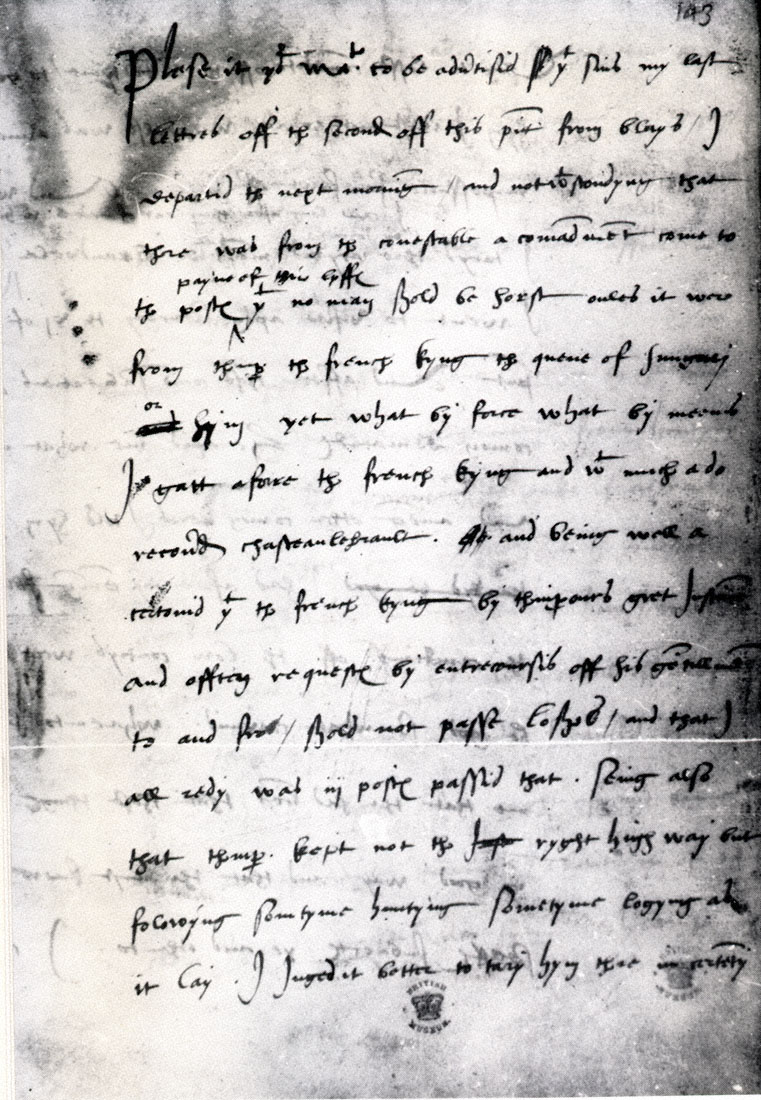 143
Plese it yor Mate to be advertisid yt sins my last
lettres off the second off this pnt from bloys / I
departid the next mornīg / and notwtstondyng that
there was from the conestable a comādment come to
payne of ther lyffe
the postes yt no man shold be horst onles it were
from themp̄ the french kyng the quene of hungari
or
hym yet what by force what by meens
I gatt afore the french kyng and wt much a do
recoverd chasteaulehrault . and being well a
certenid yt the french kyng by themperours gret Instanc
and offten requestes by entrecoursis off his gētillmen
to and fro / shold not passe loshes / and that I
all redy was iij postes passid that . Seing also
that themp̄. kept not the ryght high way but
folowyng somtyme huntyng sometyme logyng as
it lay . I Juged it better to tary hym there in certenty
BRITISH
MUSEUM